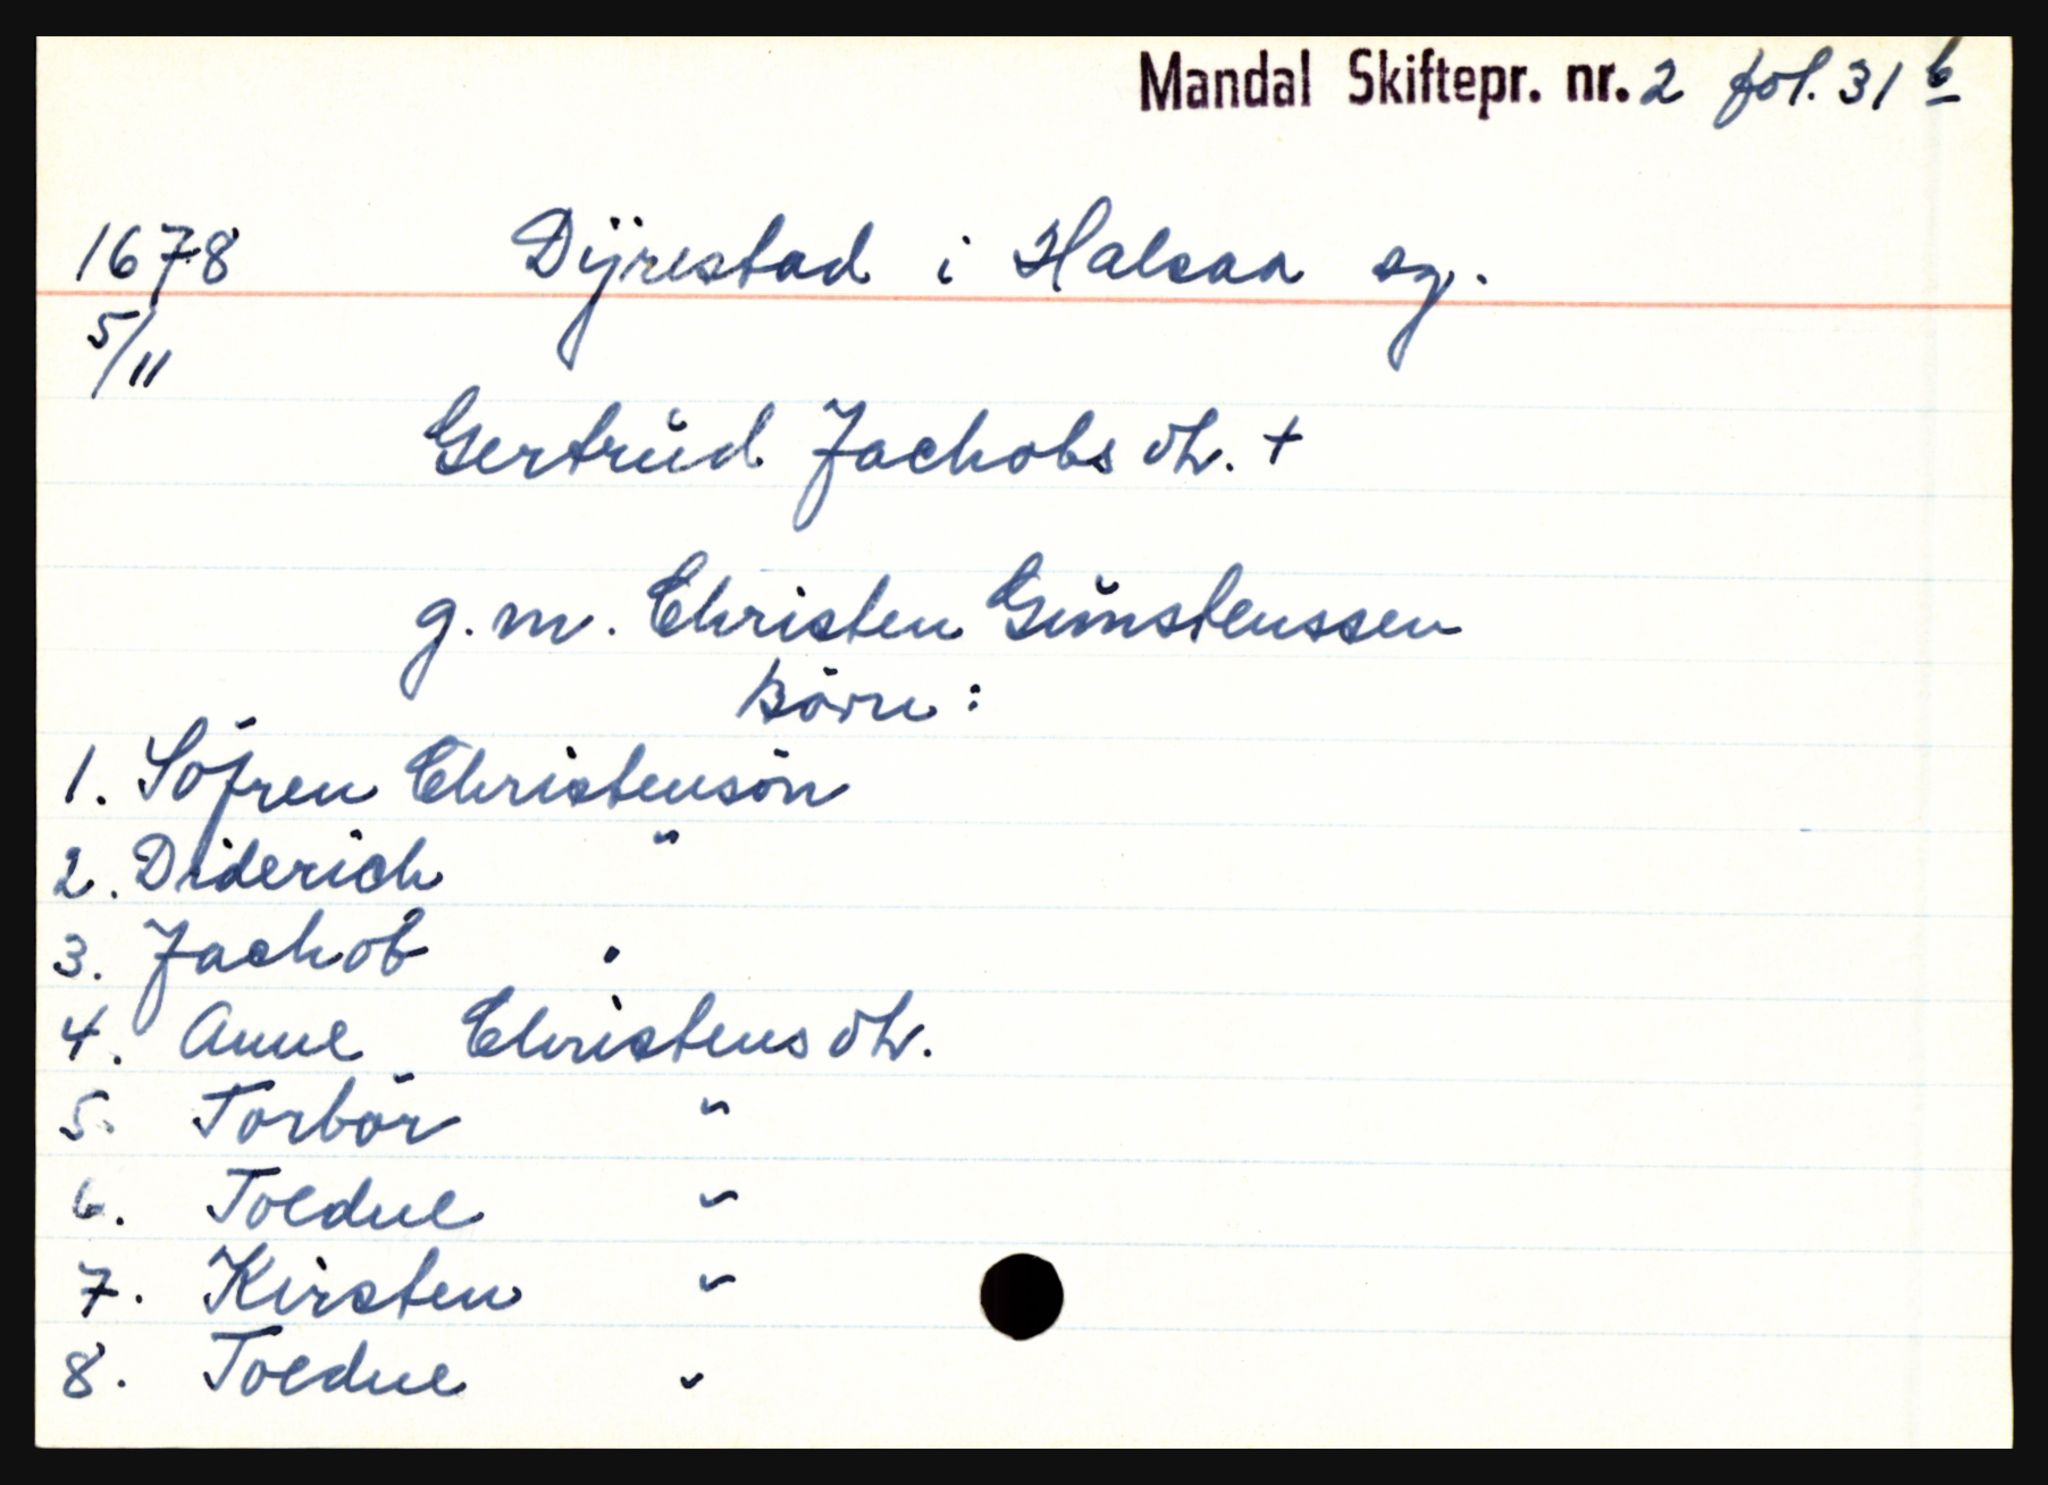 Mandal Skiftepr. nr. 2 fol. 31 b
1678 Dÿrestad i Halsaa sg.
5/11
Gertrŭd Jachobs dtr. +
g. m. Christen Gŭnstenssen
børn:
1. Söfren Christensön
2. Diderich "
3. Jachob "
4. Anne Christens dtr.
5. Torbör "
6. Toedne "
7. Kirsten "
8. Toedne "